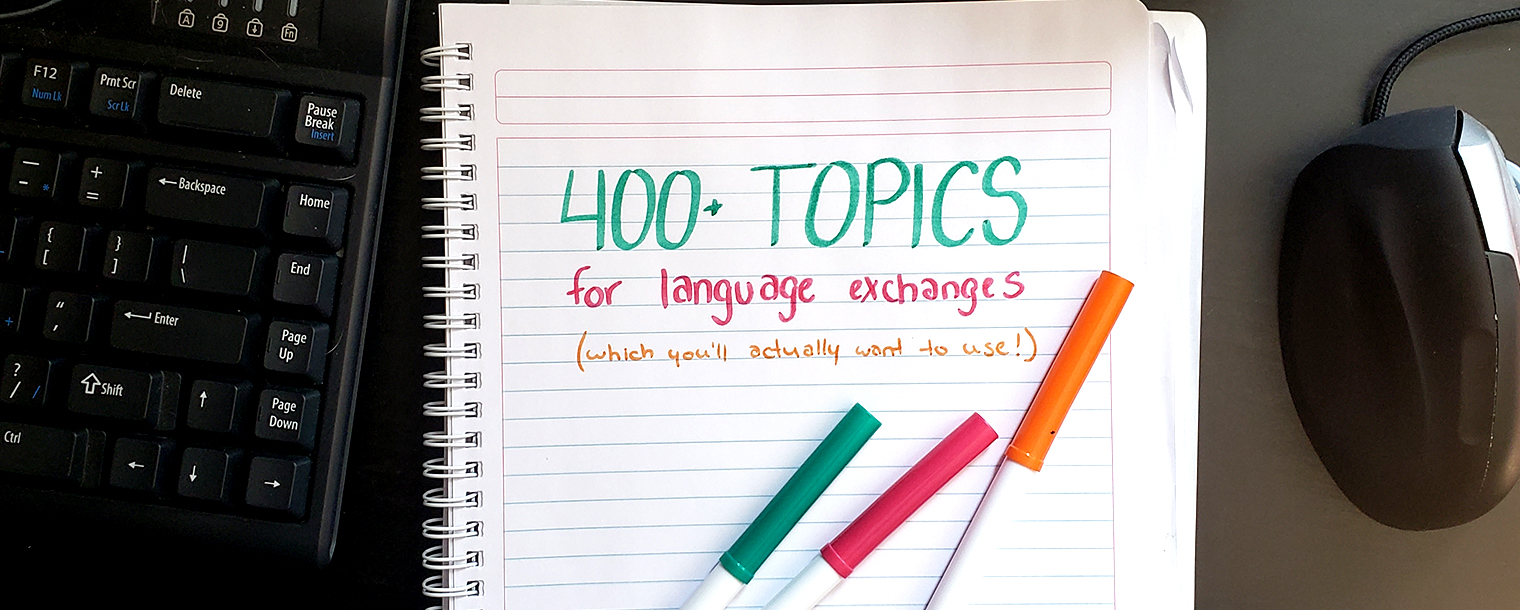 A 9 ↓ Fn
F12 Prnt Scr Delete Pause Break
Num Lk Scr Lk Insert
— - * + = ←Backspace Home
{ [ } ] | \ End
" ' ←Enter Page Up
? / / ⇧Shift ↑ Page Down
Ctrl ← ↓ →
400+ TOPICS
for language exchanges
(which you'll actually want to use!)